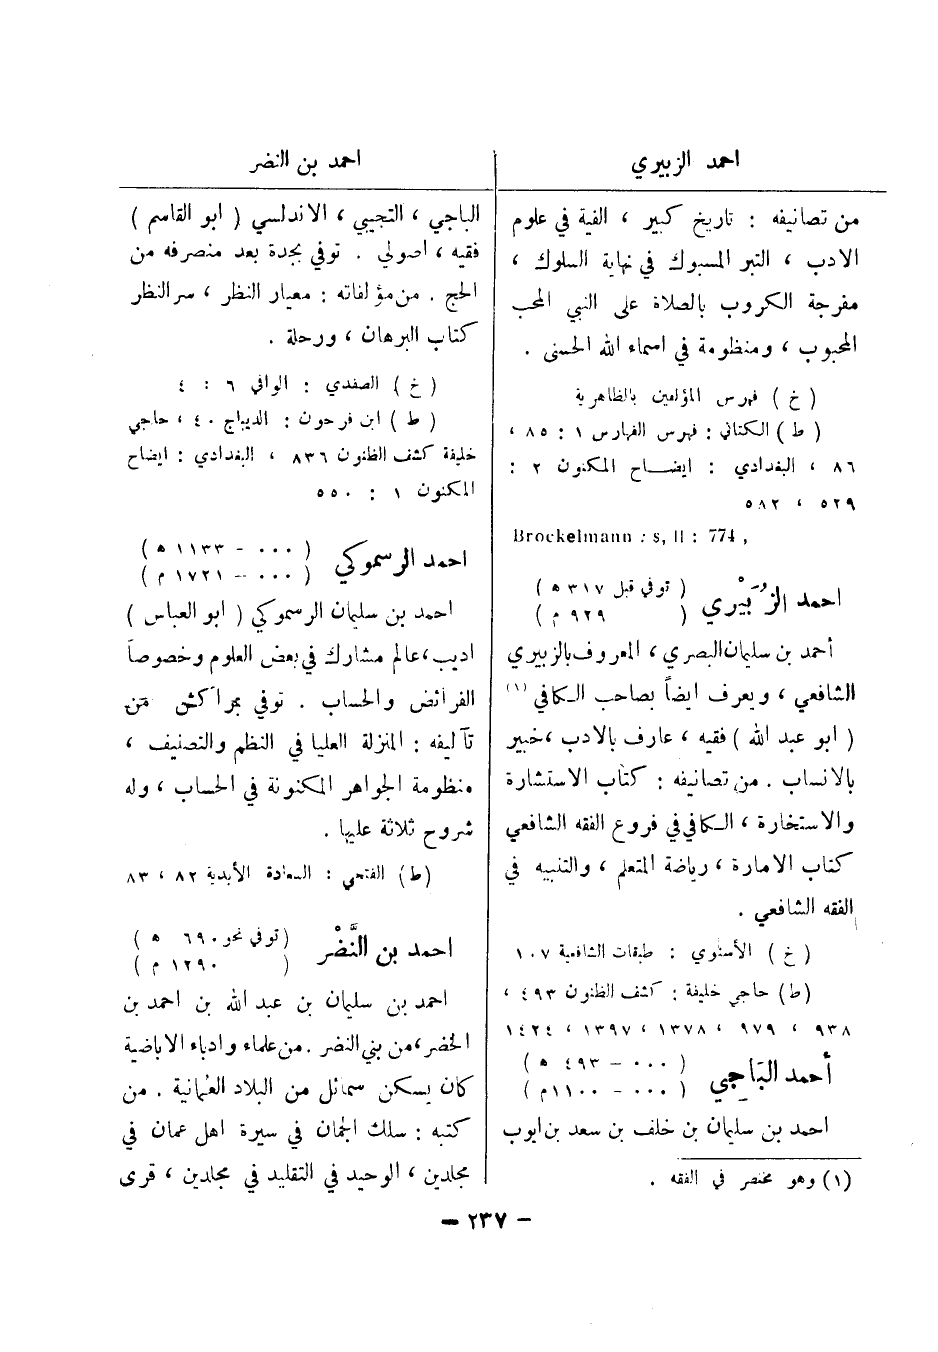 احمد الزبيري
من تصانيفه : تاريخ كبير ، الفية في علوم
الادب ، التبر المسبوك في نهاية السلوك ،
مفرجة الكروب بالصلاة على النبي المحب
المحبوب ، ومنظومة في اسماء الله الحسنى .
( خ ) فهرس المؤلفين بالظاهرية
( ط ) الكتاني : فهرس الفهارس ١ : ٨٥ ،
٨٦ ، البغدادي : ايضاح المكنون ٢ :
٥٢٩ ، ٥٨٢
Brockelmann : s, II : 774 ,
احمد الزُّبَيْري ( توفي قبل ٣١٧ ه )
( ٩٢٩ م )
أحمد بن سليمان البصري ، المعروف بالزبيري
الشافعي ، ويعرف ايضاً بصاحب الكافي (١)
( ابو عبد الله ) فقيه ، عارف بالادب ، خبير
بالانساب . من تصانيفه : كتاب الاستشارة
والاستخارة ، الكافي في فروع الفقه الشافعي
كتاب الامارة ، رياضة المتعلم ، والتنبيه في
الفقه الشافعي .
( خ ) الأسنوي : طبقات الشافعية ١٠٧
( ط ) حاجي خليفة : كشف الظنون ٤٩٣ ،
٩٣٨ ، ٩٧٩ ، ١٣٧٨ ، ١٣٩٧ ، ١٤٢٤
أحمد البَاجي ( ٠٠٠ - ٤٩٣ ه )
( ٠٠٠ - ١١٠٠ م )
احمد بن سليمان بن خلف بن سعد بن ايوب
(١) وهو مختصر في الفقه .
احمد بن النضر
الباجي ، التجيبي ، الاندلسي ( ابو القاسم )
فقيه ، اصولي . توفي بجدة بعد منصرفه من
الحج . من مؤلفاته : معيار النظر ، سر النظر
كتاب البرهان ، ورحلة .
( خ ) الصفدي : الوافي ٦ : ٤
( ط ) ابن فرحون : الديباج ٤٠ ، حاجي
خليفة كشف الظنون ٨٣٦ ، البغدادي : ايضاح
المكنون ١ : ٥٥٠
احمد الرسموكي ( ٠٠٠ - ١١٣٣ ه )
( ٠٠٠ - ١٧٢١ م )
احمد بن سليمان الرسموكي ( ابو العباس )
اديب ، عالم مشارك في بعض العلوم وخصوصاً
الفرائض والحساب . توفي بمراكش من
تآليفه : المنزلة العليا في النظم والتصنيف ،
منظومة الجواهر المكنونة في الحساب ، وله
شروح ثلاثة عليها .
( ط ) الفتحي : السعادة الأبدية ٨٢ ، ٨٣
احمد بن النَّضْر ( توفي نحو ٦٩٠ ه )
( ١٢٩٠ م )
احمد بن سليمان بن عبد الله بن احمد بن
الخضر ، من بني النضر . من علماء وادباء الاباضية
كان يسكن سمائل من البلاد العُمانية . من
كتبه : سلك الجمان في سيرة اهل عمان في
مجلدين ، الوحيد في التقليد في مجلدين ، قرى
- ٢٣٧ -